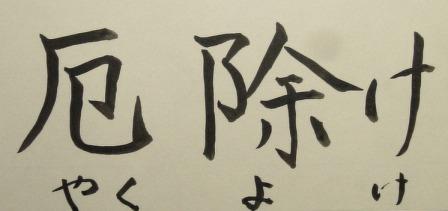 厄除け
やくよけ